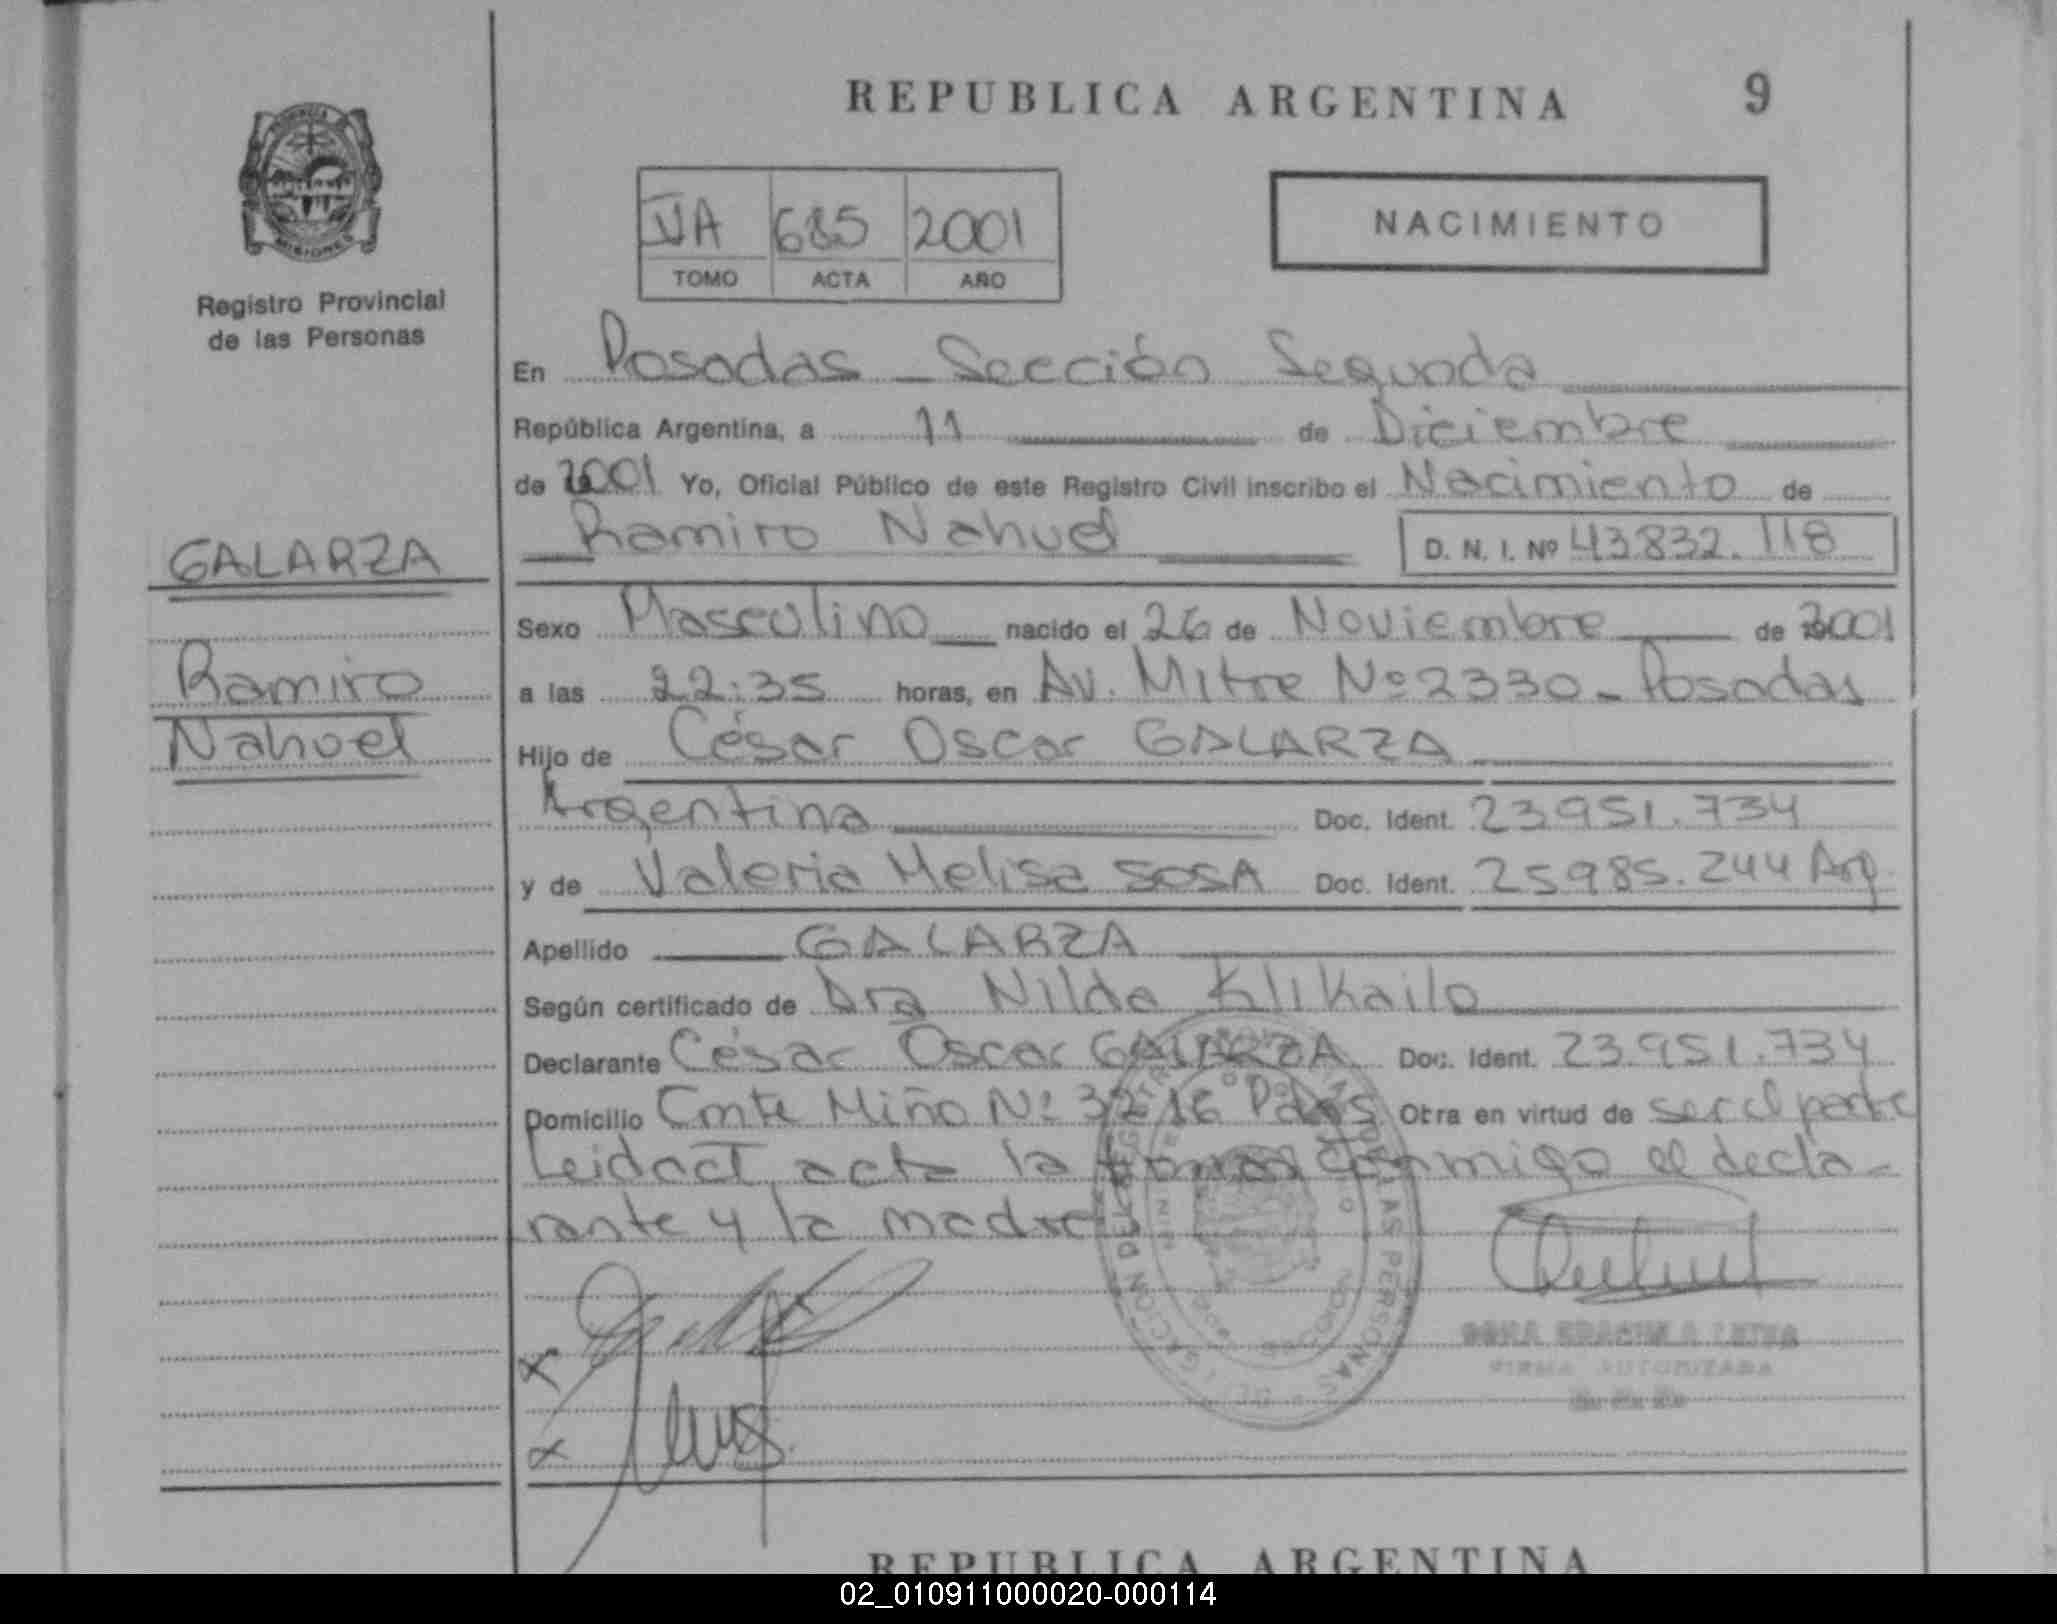 REPUBLICA ARGENTINA 9
PROVINCIA
MISIONES
Registro Provincial
de las Personas
VA 685 2001
TOMO ACTA AÑO
NACIMIENTO
En Posadas - Sección Segunda
República Argentina, a 11 de Diciembre
de 2001 Yo, Oficial Público de este Registro Civil inscribo el Nacimiento de
Ramiro Nahuel D. N. I. Nº 43832.118
GALARZA
Ramiro
Nahuel
Sexo Masculino nacido el 26 de Noviembre de 2001
a las 22:35 horas, en Av. Mitre Nº 2330 - Posadas
Hijo de César Oscar GALARZA
Argentina Doc. Ident. 23.951.734
y de Valeria Melisa SOSA Doc. Ident. 25985.244 Arg.
Apellido GALARZA
Según certificado de Dra Nilda Klikailo
Declarante César Oscar GALARZA Doc. Ident. 23.951.734
Domicilio Cmte Miño Nº 3216 Pdas Otra en virtud de ser el padre
Leida el acta la firman conmigo el decla-
rante y la madre
DE LAS PERSONAS
FIRMA AUTORIZADA
REPUBLICA ARGENTINA
02_010911000020-000114